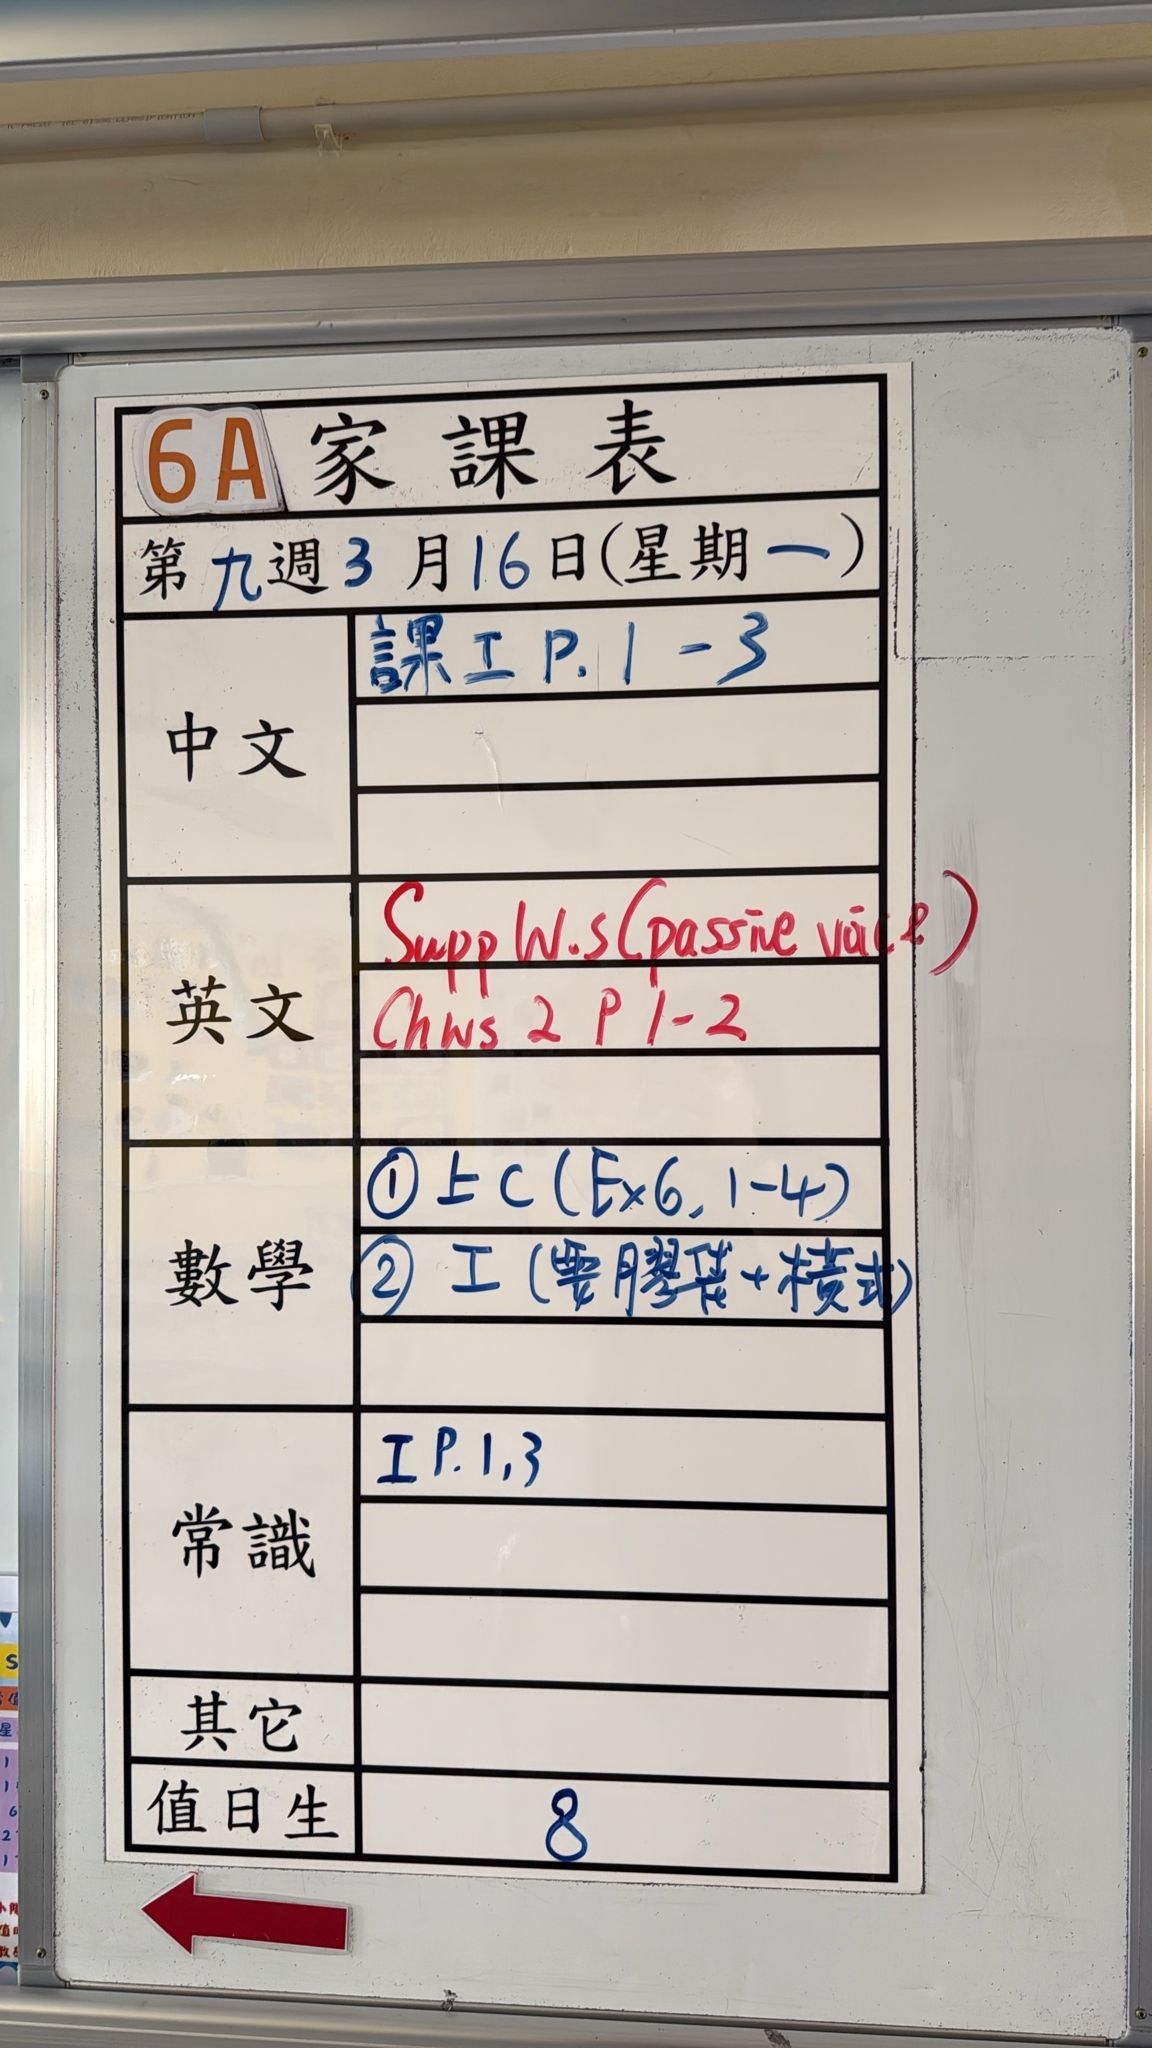 6A 家課表
第九週3月16日(星期一)
中文
課工 P.1-3
英文
Supp W.s (passive voice)
Ch ws 2 P 1-2
數學
① 上C (Ex6, 1-4)
② 工 (要膠袋+橫式)
常識
工 P.1,3
其它
值日生
8